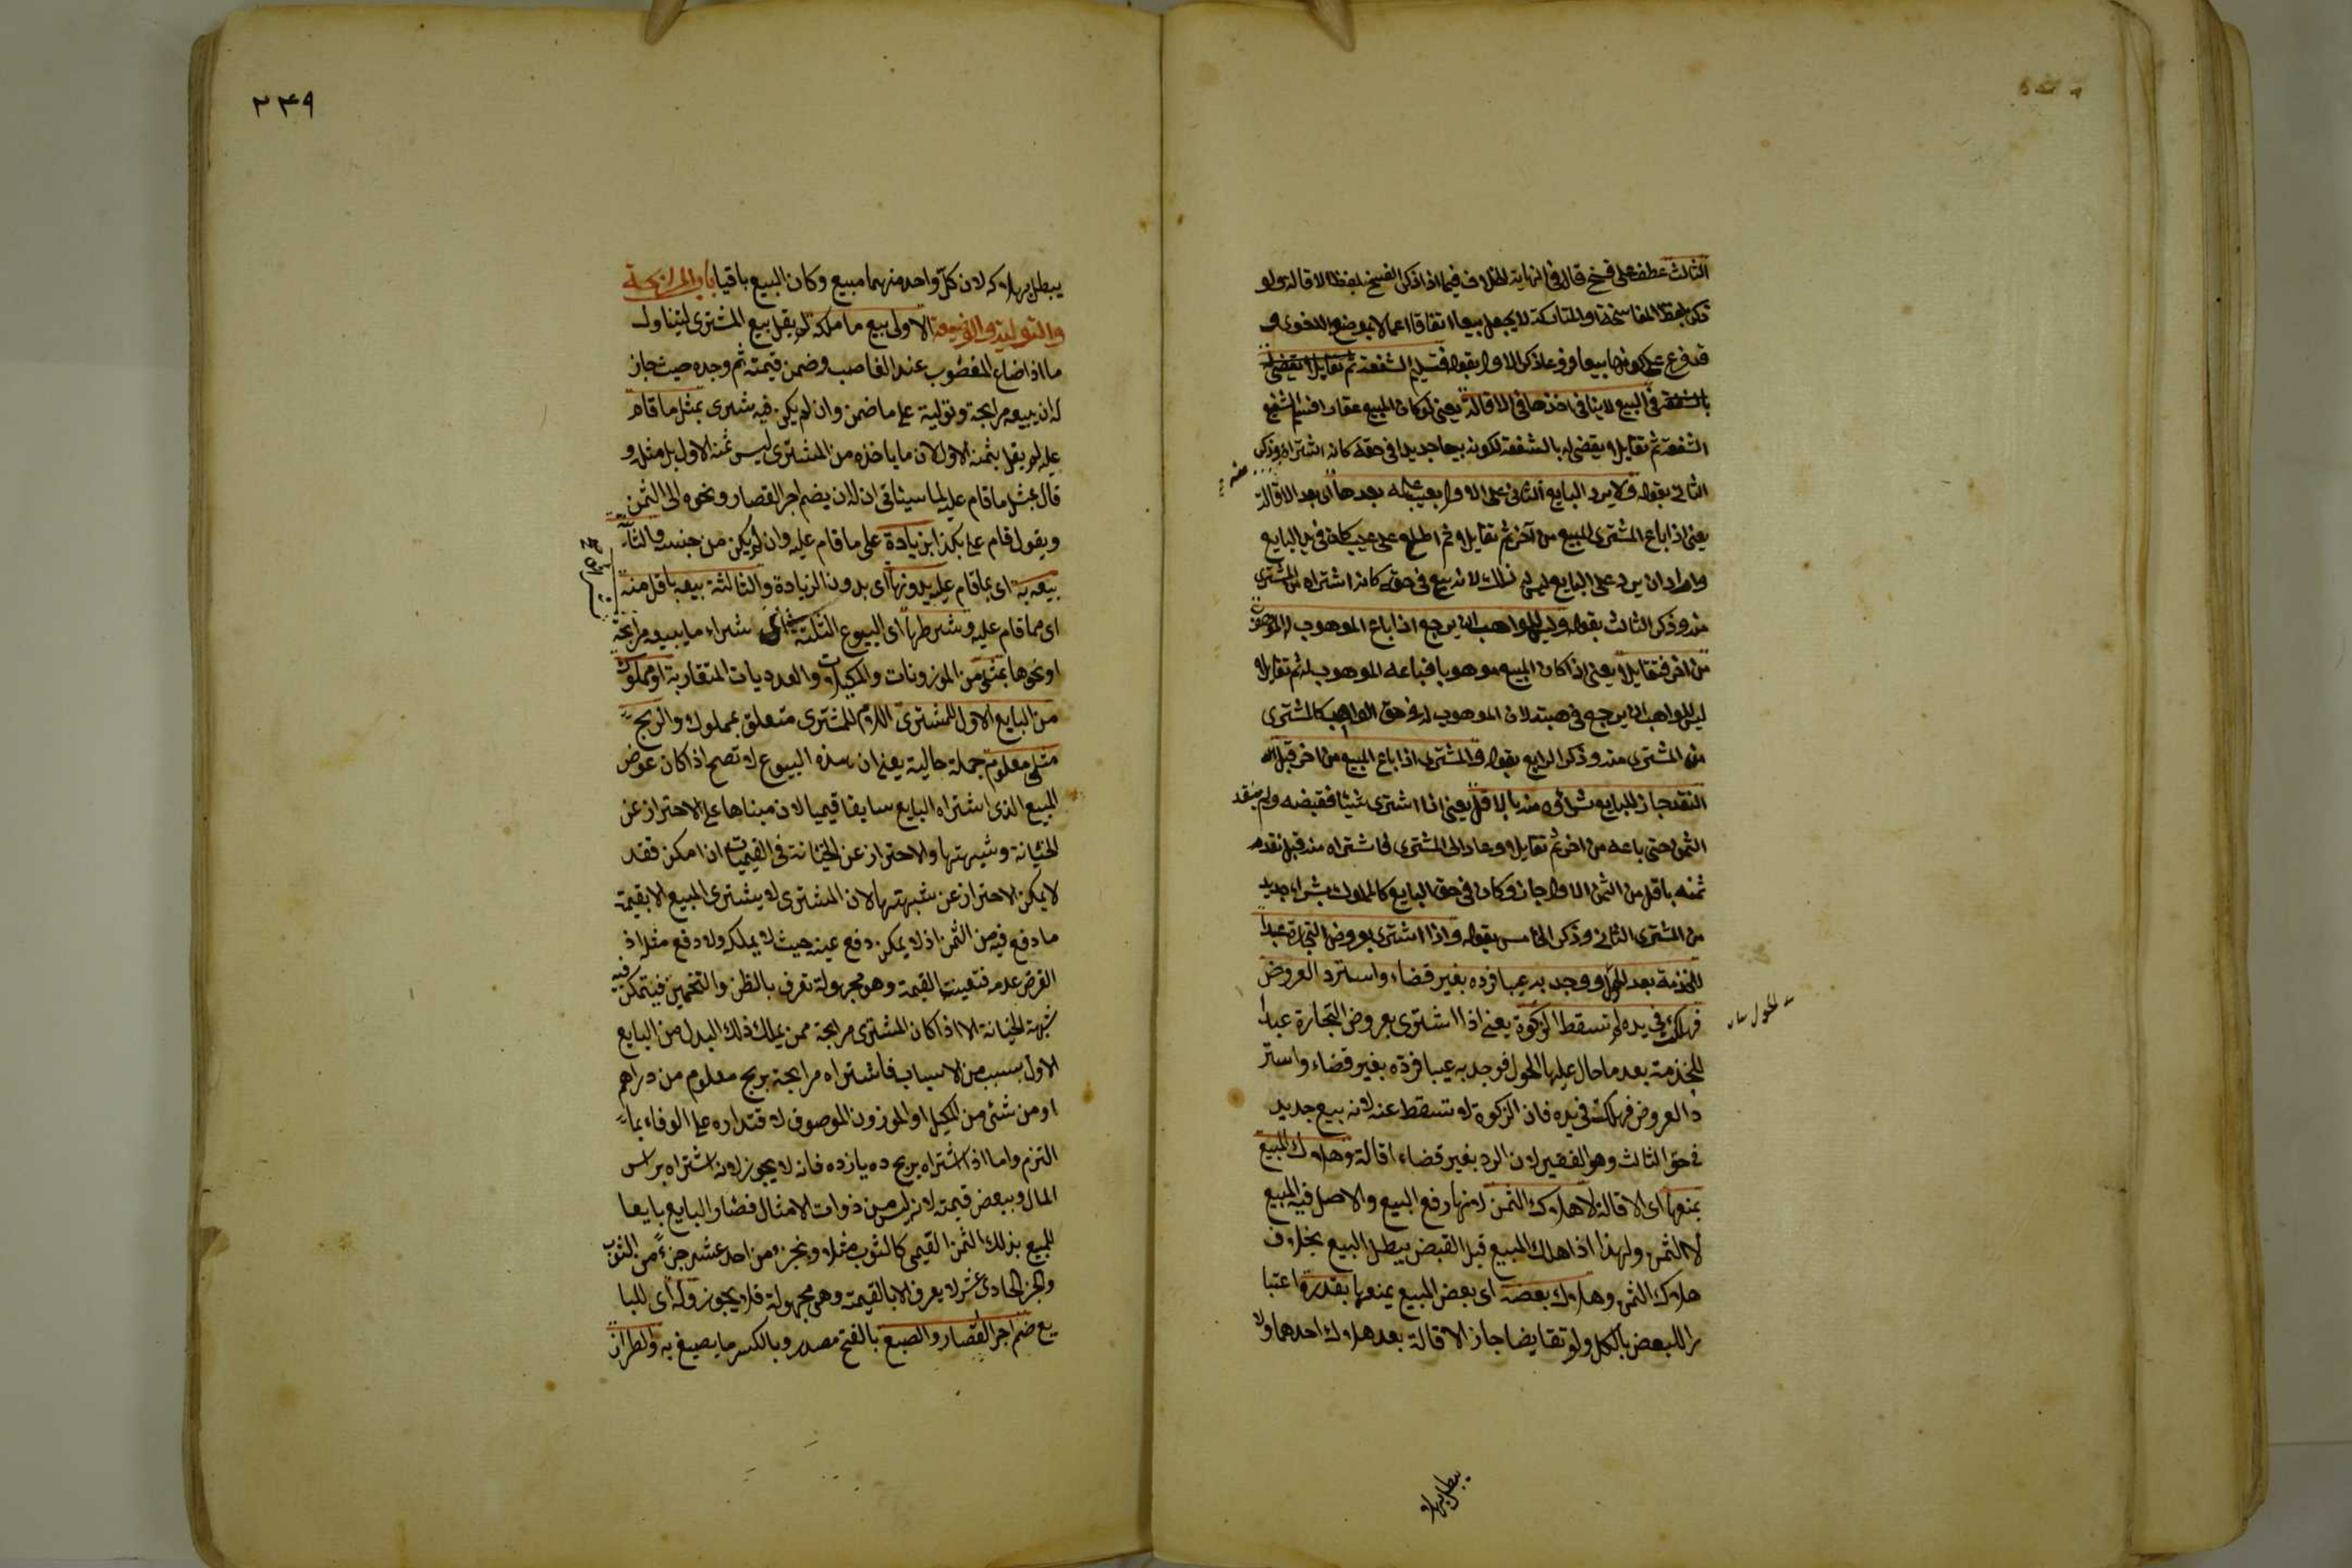 الثالث عطف على فسخ قال في النهاية الخلاف فيما اذا ذكر الفسخ بلفظ الاقالة ولو
ذكر بلفظ المفاسخة او المتاركة لا يجعل بيعا اتفاقا اعمالا لموضوعه اللغوى و
قد فرع على كونها بيعا فروعا ذكر الاول بقوله فتسليم الشفعة ثم تقايلا يقضى له
بالشفعة في البيع لا ينافى اخذها في الاقالة يعنى لو كان المبيع عقارا فسلم الشفيع
الشفعة ثم تقايلا يقضى له بالشفعة لكونه بيعا جديدا في حقه كانه اشتراه وذكر
منه
الثانى بقوله ولا يرد البايع الثانى على الاول بعيب علمه بعدها اى بعد الاقالة
يعنى اذا باع المشترى المبيع من آخر ثم تقايلا ثم اطلع على عيب كان في يد البايع
واراد ان يرد على البايع ليس له ذلك لانه بيع في حقه كانه اشتراه من المشترى
منه وذكر الثالث بقوله وليس للواهب ان يرجع اذا باع الموهوب له الموهوب
من اخر فتقايلا يعنى اذا كان المبيع موهوبا فباعه الموهوب له ثم تقايلا
ليس للواهب ان يرجع في هبته لان الموهوب له في حق الواهب كالمشترى
من المشترى منه وذكر الرابع بقوله والمشترى اذا باع المبيع من اخر قبل
النقد جاز للبايع شراؤه منه بالاقل يعنى اذا اشترى شيئا فقبضه ولم ينقد
الثمن حتى باعه من اخر ثم تقايلا وعاد الى المشترى فاشتراه منه قبل نقد
ثمنه باقل من الثمن الاول جاز وكان في حق البايع كالمملوك بشراء جديد
من المشترى الثانى وذكر الخامس بقوله واذا اشترى بعروض التجارة عبدا
للخدمة بعد الحول ووجد به عيبا فرده بغير قضاء واسترد العروض
فهلكت في يده لم تسقط الزكوة يعنى اذا اشترى بعروض التجارة عبدا
للخدمة بعد ما حال عليها الحول فوجد به عيبا فرده بغير قضاء واستر
د العروض فهلكت في يده فان الزكوة لا تسقط عنه لانه بيع جديد
في حق الثالث وهو الفقير لان الرد بغير قضاء اقالة وهلاك المبيع
يمنعها اى الاقالة لا هلاك الثمن لانها رفع البيع والاصل فيه المبيع
لا الثمن ولهذا اذا هلك المبيع قبل القبض يبطل البيع بخلاف
هلاك الثمن وهلاك بعضه اى بعض المبيع يمنعها بقدره اعتبا
را للبعض بالكل ولو تقايضا جاز الاقالة بعد هلاك احدهما ولا
يبطل بهلا
٢٣٩
يبطل بهلاكه لان كل واحد منهما مبيع وكان البيع باقيا باب المرابحة
والتولية والوضيعة الاولى بيع ما ملكه لم يقل بيع المشترى ليتناول
ما اذا ضاع المغصوب عند الغاصب وضمن قيمته ثم وجده حيث جاز
له ان يبيعه مرابحة وتولية على ما ضمن وان لم يكن فيه شرى بمثل ما قام
عليه لم يقل بثمنه الاول لان ما ياخذه من المشترى ليس ثمنه الاول بل مثله و
قال بمثل ما قام عليه لما سيئاتى ان له ان يضم اجر القصار ونحوه الى الثمن
ويقول قام على بكذا بزيادة على ما قام عليه وان لم يكن من جنسه والثانية
بيعه به اى بما قام عليه بدونها اى بدون الزيادة والثالثة بيعه باقل منه
اى مما قام عليه وشرطها اى البيوع الثلثة شراء ما يبيعه مرابحة
او نحوها بمثلى من الموزونات والمكيلات والعدديات المتقاربة او مملوك
من البايع الاول للمشترى اللام للمشترى متعلق بمملوك والربح
مثلى معلوم جملة حالية يعنى ان هذه البيوع لا تصح اذا كان عوض
المبيع الذى اشتراه البايع سابقا قيميا لان مبناها على الاحتراز عن
الخيانة وشبهتها والاحتراز عن الخيانة في القيميات ان امكن فقد
لا يمكن الاحتراز عن شبهتها لان المشترى لا يشترى المبيع الا بقيمة
ما دفع فيه من الثمن اذ لا يمكن دفع عينه حيث لا يملكه ولا دفع مثله اذ
الفرض عدمه فتعينت القيمة وهو مجهولة تعرف بالظن والتخمين فيتمكن فيه
شبهة الخيانة الا اذا كان المشترى مرابحة ممن يملك ذلك البدل من البايع
الاول بسبب من الاسباب فاشتراه مرابحة بربح معلوم من دراهم
او من شئ من المكيل او الموزون الموصوف لاقتداره على الوفاء بما
التزم واما اذا اشتراه بربح ده يازده فانه لا يجوز لانه اشتراه براس
المال وببعض قيمته لانه ليس من ذوات الامثال فصار البايع بايعا
للمبيع بذلك الثمن القيمى كالثوب مثلا وبجزء من احد عشر جزءً من الثوب
والجزء الحادى عشر لا يعرف الا بالقيمة وهى مجهولة فلا يجوز وله اى للبا
يع ضم اجر القصار والصبغ بالفتح مصدر وبالكسر ما يصبغ به والطراز